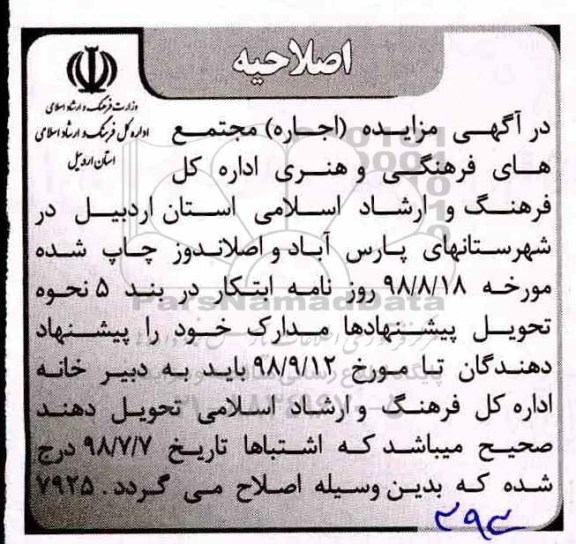 اصلاحیه
وزارت فرهنگ و ارشاد اسلامی
اداره کل فرهنگ و ارشاد اسلامی
استان اردبیل
در آگهی مزایده (اجاره) مجتمع
های فرهنگی و هنری اداره کل
فرهنگ و ارشاد اسلامی استان اردبیل در
شهرستانهای پارس آباد و اصلاندوز چاپ شده
مورخه ۹۸/۸/۱۸ روز نامه ابتکار در بند ۵ نحوه
تحویل پیشنهادها مدارک خود را پیشنهاد
دهندگان تا مورخ ۹۸/۹/۱۲ باید به دبیر خانه
اداره کل فرهنگ و ارشاد اسلامی تحویل دهند
صحیح میباشد که اشتباها تاریخ ۹۸/۷/۷ درج
شده که بدین وسیله اصلاح می گردد. ۷۹۲۵
ParsNamadData